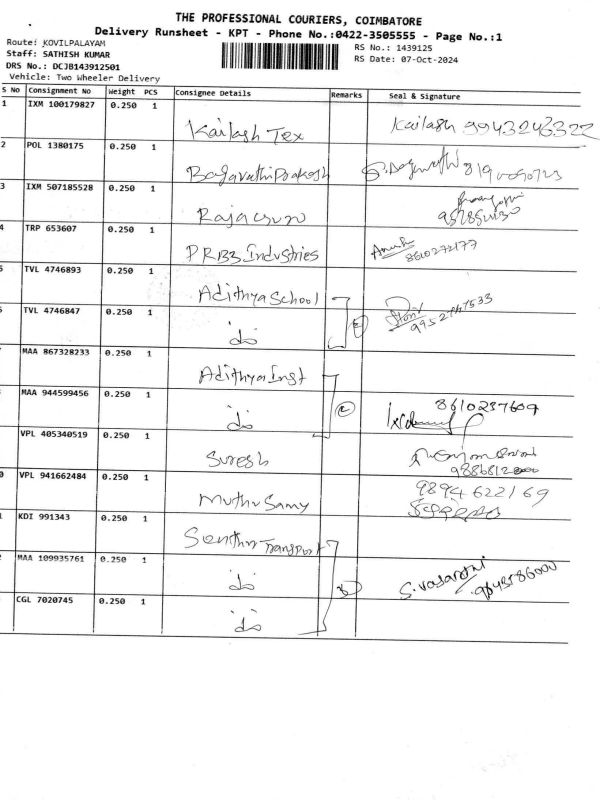 THE PROFESSIONAL COURIERS, COIMBATORE
Delivery Runsheet - KPT - Phone No.:0422-3505555 - Page No.:1
Route: KOVILPALAYAM
RS No.: 1439125
Staff: SATHISH KUMAR
RS Date: 07-Oct-2024
DRS No.: DCJB143912501
Vehicle: Two Wheeler Delivery
S No Consignment No Weight PCS Consignee Details Remarks Seal & Signature
1 IXM 100179827 0.250 1 Kailash Tex Kailash 9943246322
2 POL 1380175 0.250 1 Bagavathi Prakash
3 IXM 507185528 0.250 1
4 TRP 653607 0.250 1 PRBB Industries 8610272177
5 TVL 4746893 0.250 1 Adithya School
TVL 4746847 0.250 1 do 9952747533
MAA 867328233 0.250 1 Adithya Inst
MAA 944599456 0.250 1 do 8610237609
VPL 405340519 0.250 1 Suresh
0 VPL 941662484 0.250 1 Muthu Samy 9894622169
KDI 991343 0.250 1 Senthur Transport
MAA 109935761 0.250 1 do
CGL 7020745 0.250 1 do